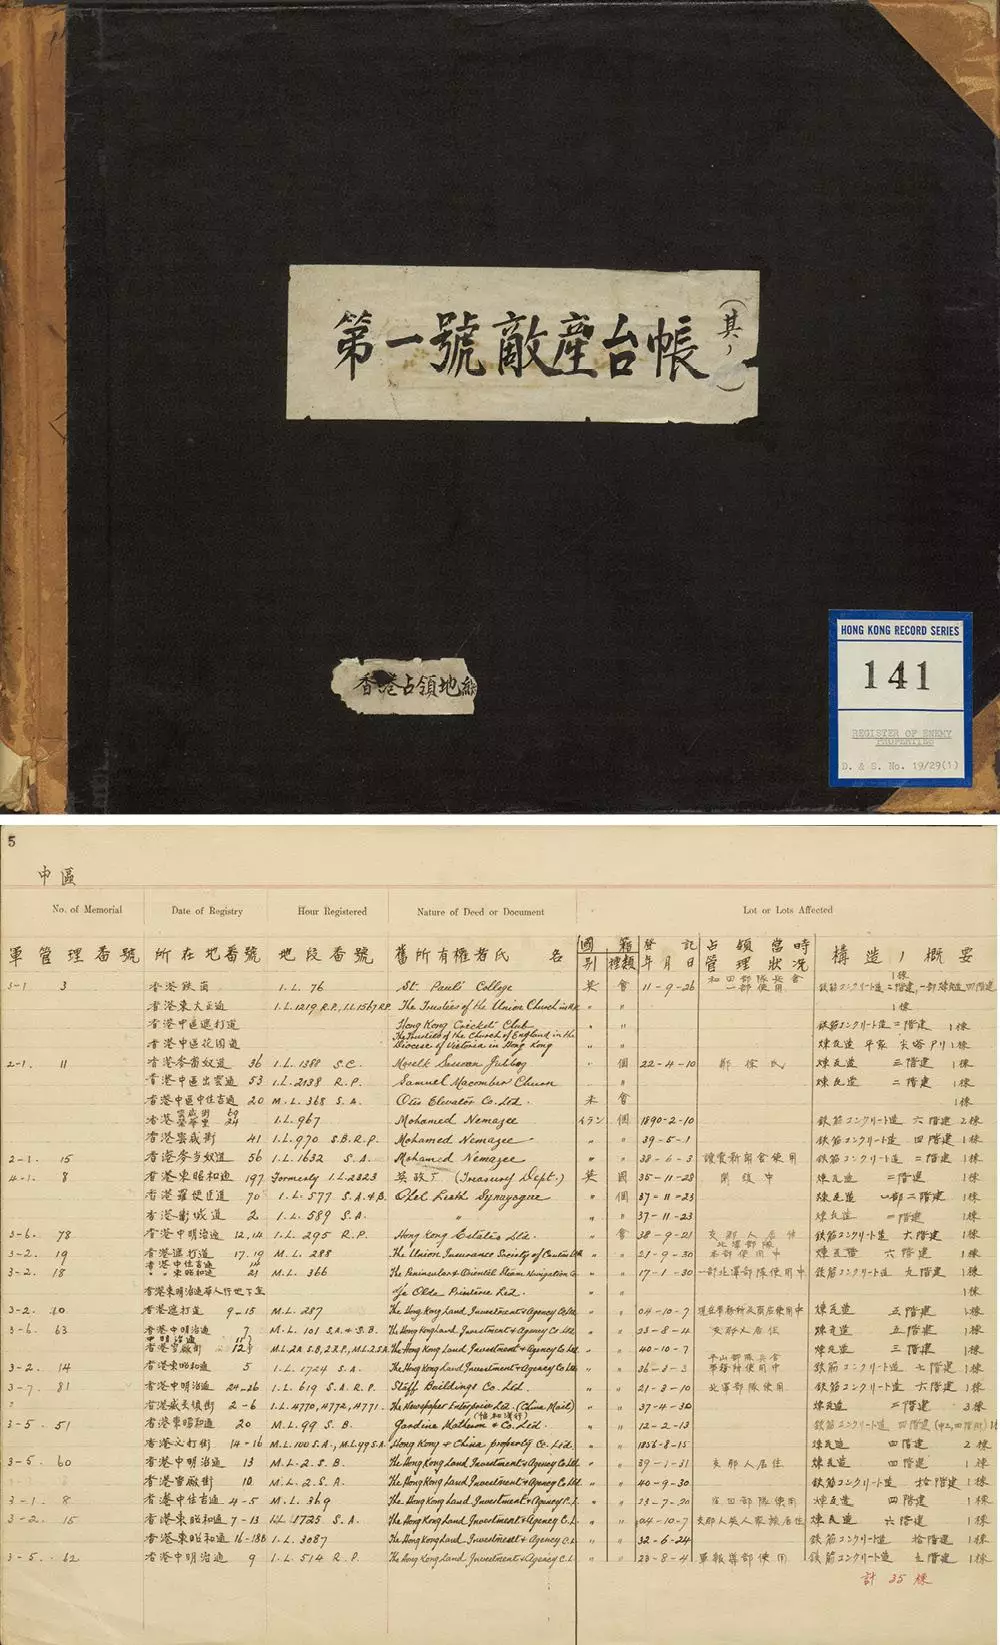 第一號敵產台帳
(其ノ一)
香港占領地總
HONG KONG RECORD SERIES
141
REGISTER OF ENEMY
PROPERTIES
D. & S. No. 19/29(1)
5
中區
No. of Memorial Date of Registry Hour Registered Nature of Deed or Document Lot or Lots Affected
軍管理番號 所在地番號 地段番號 舊所有權者氏名 國別 籍種類 登記年月日 占領當時管理狀況 構造ノ概要
3-1 3 香港鉄崗 I.L. 76 St. Paul's College 英 會 11-9-26 和田部隊兵舎一部使用 1棟
I.L.1219 R.P., I.L.1567 R.P. The Trustees of the Union Church in H.K. 〃 〃 1棟
香港中區遮打道 Hong Kong Cricket Club 〃 〃 鉄筋コンクリート造 二階建 1棟
香港中區花園道 The Trustees of the Church of England in the Diocese of Victoria in Hong Kong 〃 〃 煉瓦造 平家 尖塔アリ 1棟
2-1. 11 香港麥當奴道 36 I.L. 1388 S.C. 個 22-4-10 鄭徐氏 煉瓦造 三階建 1棟
香港中區出雲通 53 I.L. 2138 R.P. Samuel Macomber Churn 〃 煉瓦造 二階建 1棟
香港中區中住吉通 20 M.L. 368 S.A. Otis Elevator Co. Ltd. 米 會 1棟
香港雲咸街 69 榮華里 24 I.L. 967 Mohamed Nemazee イラン 個 1890-2-10 鉄筋コンクリート造 六階建 2棟
香港雲咸街 41 I.L. 970 S.B.R.P. Mohamed Nemazee 〃 〃 39-5-1 鉄筋コンクリート造 四階建 1棟
2-1. 15 香港麥當奴道 56 I.L. 1632 S.A. Mohamed Nemazee 〃 〃 38-6-3 使用 鉄筋コンクリート造 二階建 1棟
4-1. 8 香港東昭和通 197 Formerly I.L. 2323 英政丁 (Treasury Dept.) 英 國 35-11-28 閉鎖中 煉瓦造 二階建 1棟
香港羅便臣道 70 I.L. 577 S.A.&B. Ohel Leah Synagogue 〃 個 37-11-23 煉瓦造 一部二階建 1棟
香港衛城道 2 I.L. 589 S.A. 〃 〃 〃 37-11-23 煉瓦造 一階建 1棟
3-6. 78 香港中明治通 12,14 I.L. 295 R.P. Hong Kong Estates Ltd. 〃 會 38-9-21 支那人居住 鉄筋コンクリート造 六階建 1棟
3-2. 19 香港遮打道 17.19 M.L. 288 The Union Insurance Society of Canton Ltd. 〃 〃 21-9-30 北澤部隊本部使用中 煉瓦造 六階建 1棟
3-2. 18 香港中住吉通 14 〃 〃 東昭和通 21 M.L. 366 The Peninsular & Oriental Steam Navigation Co. 〃 〃 17-1-30 一部北澤部隊使用中 鉄筋コンクリート造 九階建 1棟
香港東明治通華人行地下室 Ye Olde Printerie Ltd. 〃 〃 1棟
3-2. 10 香港遮打道 9-15 M.L. 287 The Hong Kong Land Investment & Agency Co. Ltd. 〃 〃 04-10-7 現在事務所及商店使用中 煉瓦造 五階建 1棟
3-6. 63 香港中明治通 7 M.L. 101 S.A.&S.B. The Hong Kong Land Investment & Agency Co. Ltd. 〃 〃 23-8-4 支那人居住 煉瓦造 五階建 1棟
中明治通 香港雪廠街 The Hong Kong Land Investment & Agency Co. Ltd. 〃 〃 40-10-7 煉瓦造 三階建 1棟
3-2. 14 香港東昭和通 5 I.L. 1724 S.A. The Hong Kong Land Investment & Agency Co. Ltd. 〃 〃 36-3-3 平山部隊兵舎事務所使用中 鉄筋コンクリート造 七階建 1棟
3-7. 81 香港中明治通 24-26 I.L. 619 S.A. R.P. Staff Buildings Co. Ltd. 〃 〃 21-3-10 北澤部隊使用 鉄筋コンクリート造 六階建 1棟
香港威灵頓街 2-6 I.L. 4770, 4772, 4771. The Newspaper Enterprise Ltd. (China Mail) 〃 〃 37-4-30 煉瓦造 二階建 3棟
3-5. 51 香港東昭和通 20 M.L. 99 S.B. Jardine Matheson & Co. Ltd. (怡和洋行) 〃 〃 12-2-13 鉄筋コンクリート造 四階建
香港文打街 14-16 M.L. 100 S.A., M.L. 99 S.A. Hong Kong & China property Co. Ltd. 〃 〃 1856-8-15 煉瓦造 四階建 2棟
3-5. 60 香港中明治通 13 M.L. 2. S.B. The Hong Kong Land Investment & Agency Co. Ltd. 〃 〃 39-1-31 支那人居住 煉瓦造 四階建 1棟
香港雪廠街 10 M.L. 2. S.A. The Hong Kong Land Investment & Agency Co. Ltd. 〃 〃 40-9-30 鉄筋コンクリート造 拾階建 1棟
3-1. 8 香港中住吉通 4-5 M.L. 369 The Hong Kong Land Investment & Agency C.L. 〃 〃 23-7-20 部隊使用 煉瓦造 四階建 1棟
3-2. 15 香港東昭和通 7-13 I.L. 1725 S.A. The Hong Kong Land Investment & Agency C.L. 〃 〃 04-10-7 支那人英人家族居住 煉瓦造 六階建 1棟
香港東昭和通 16-18B I.L. 3087 The Hong Kong Land Investment & Agency C.L. 〃 〃 32-6-24 鉄筋コンクリート造 拾階建 1棟
3-5. 62 香港中明治通 9 I.L. 514 R.P. The Hong Kong Land Investment & Agency C.L. 〃 〃 23-8-4 軍報導部使用 鉄筋コンクリート造 五階建 1棟
計 35棟